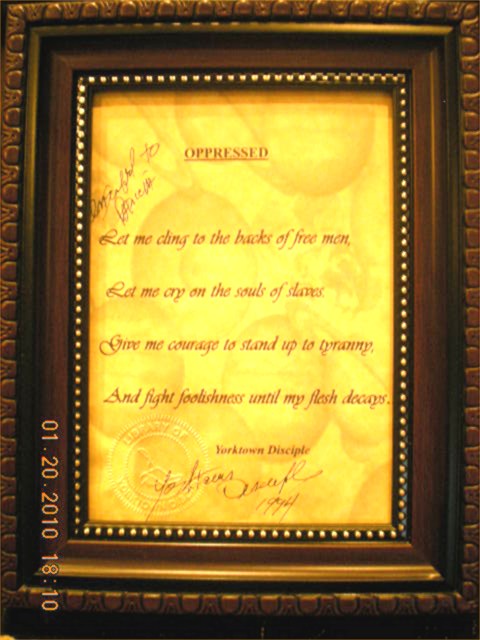 OPPRESSED
to
Let me cling to the backs of free men,
Let me cry on the souls of slaves.
Give me courage to stand up to tyranny,
And fight foolishness until my flesh decays.
Yorktown Disciple
LIBRARY OF
Yorktown Disciple
1994
01.20.2010 18:10